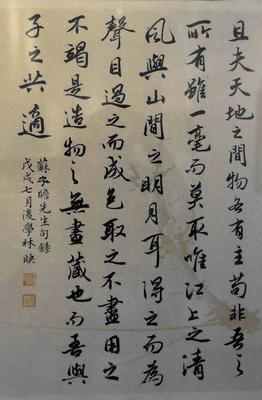 且夫天地之間物各有主苟非吾之
所有雖一毫而莫取唯江上之清
風與山間之明月耳得之而為
聲目過之而成色取之不盡用之
不竭是造物之無盡藏也而吾與
子之共適
蘇子瞻先生句錄
戊戌七月後學林映